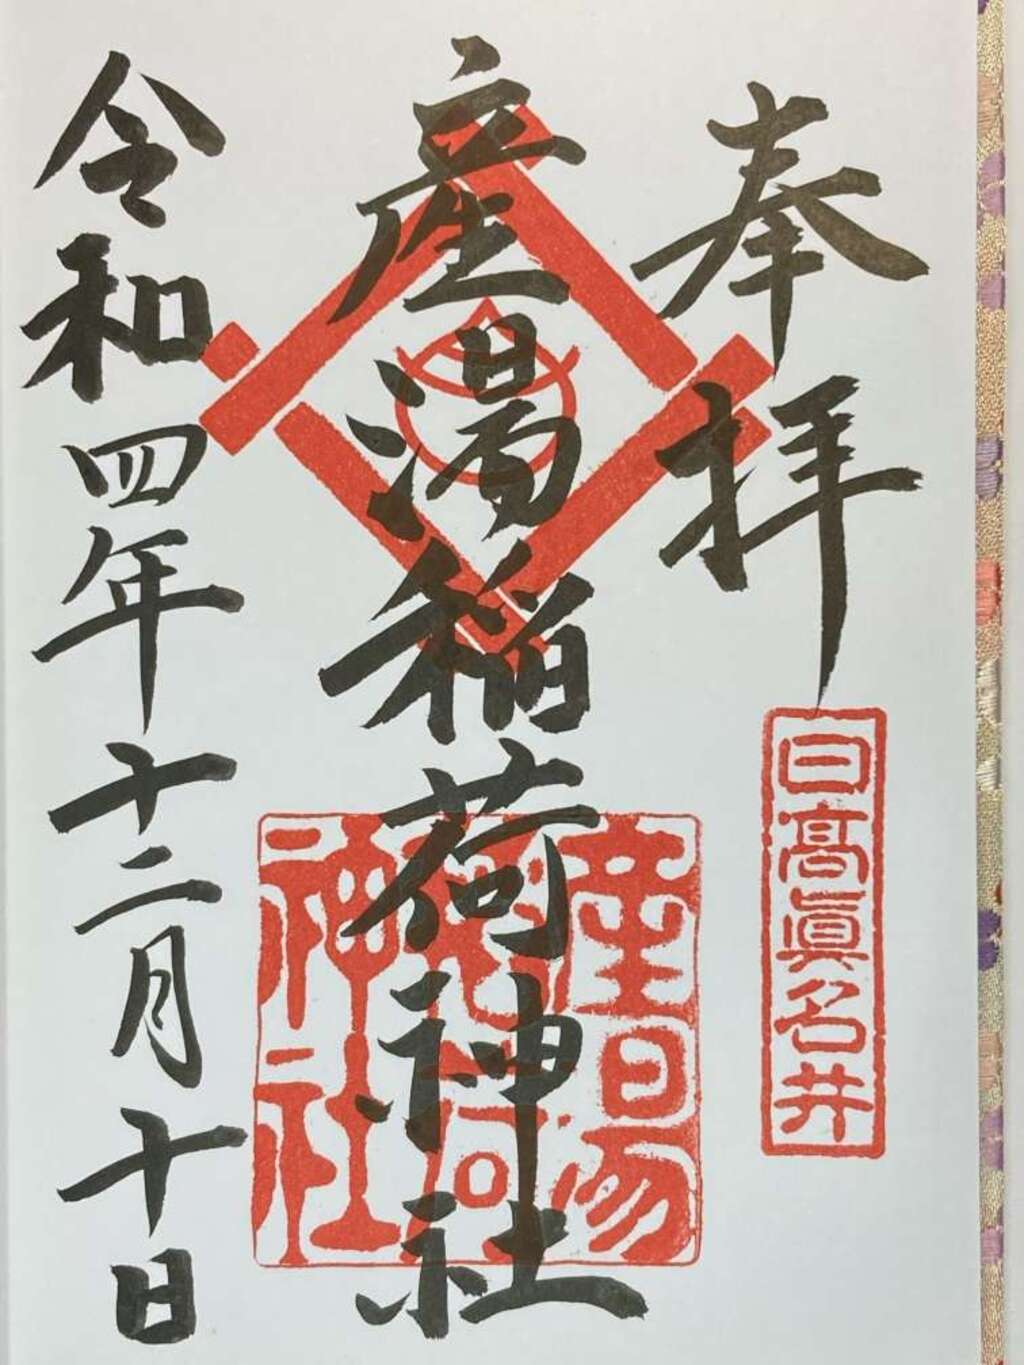 奉拝
日髙眞名井
産湯稲荷神社
産湯稲荷神社
令和四年十二月十日